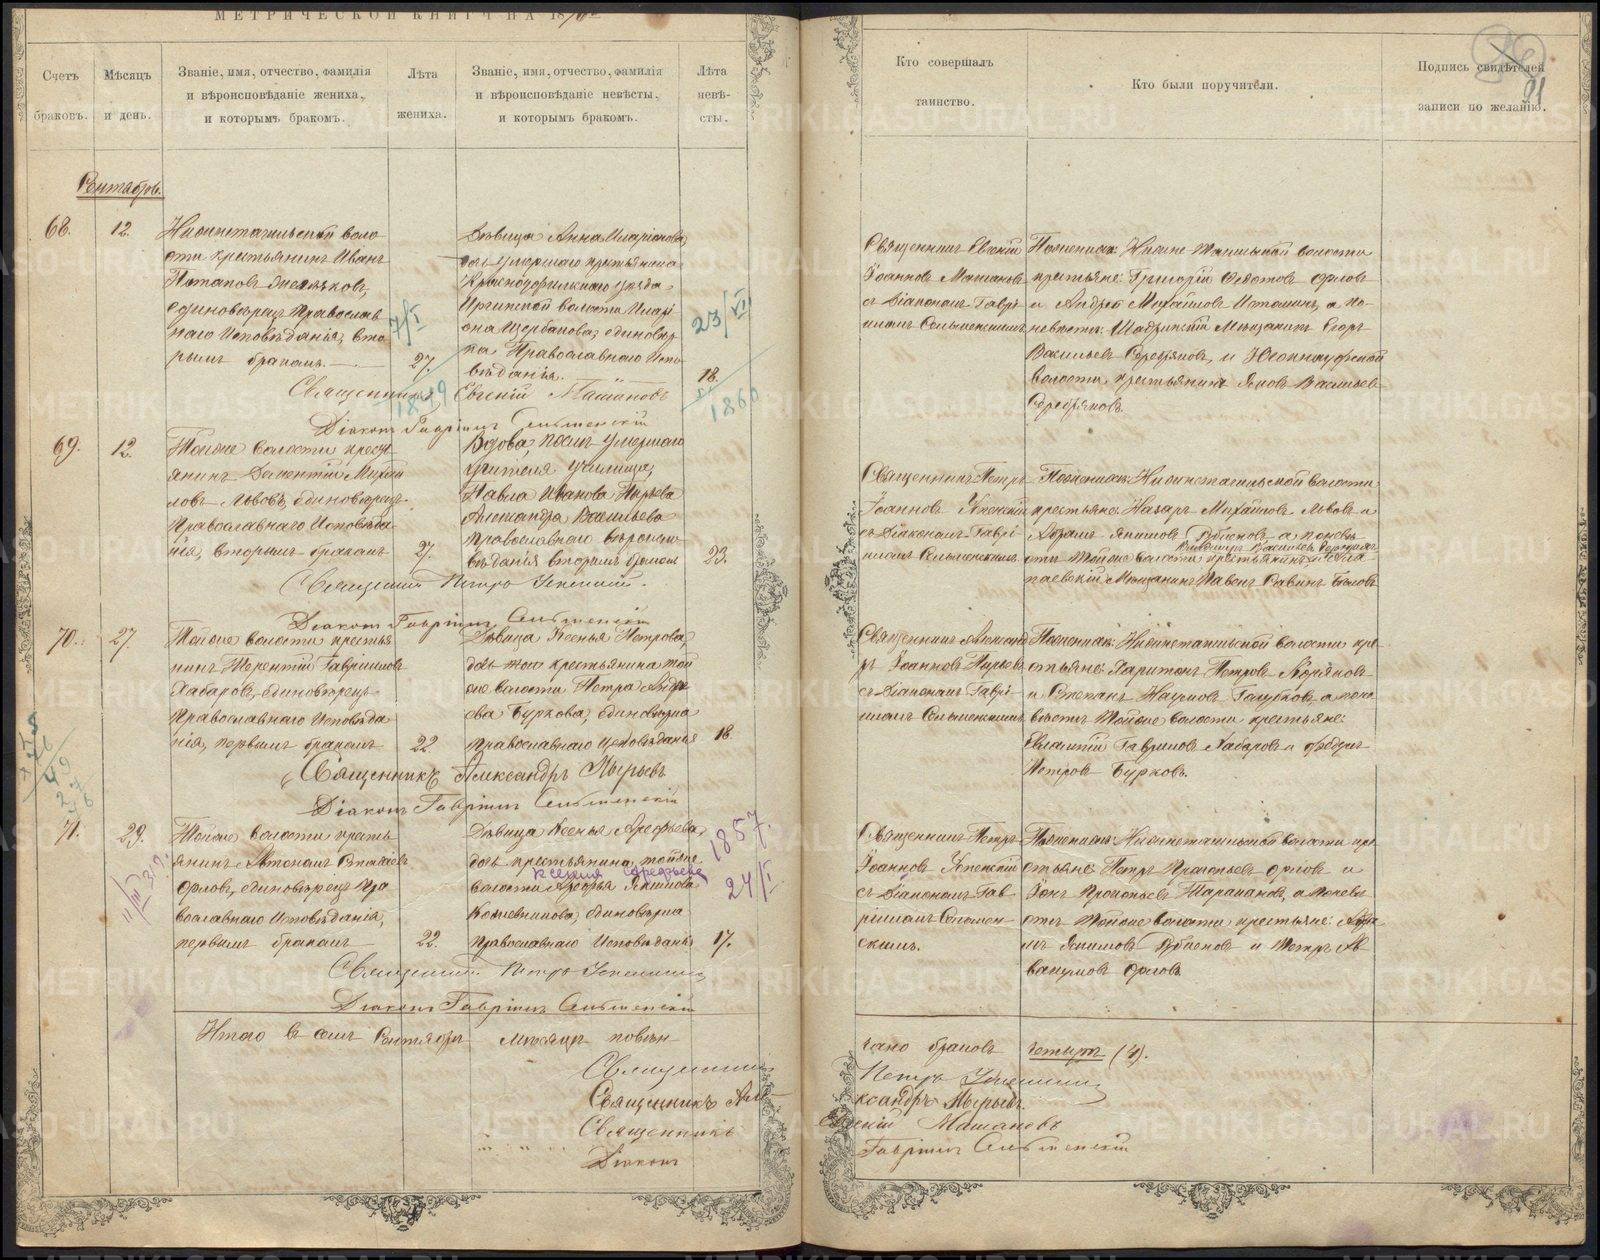 МЕТРИЧЕСКОЙ КНИГИ НА 187
Счетъ браковъ.
Мѣсяцъ и день.
Званіе, имя, отчество, фамилія и вѣроисповѣданіе жениха, и которымъ бракомъ.
Лѣта жениха.
Званіе, имя, отчество, фамилія и вѣроисповѣданіе невѣсты, и которымъ бракомъ.
Лѣта невѣ-
сты.
Сентябрь.
68.
12.
Нижнетагильской воло-
сти крестьянинъ Иванъ
Потаповъ
единовѣрецъ Православ
наго Исповѣданія, вто
рымъ бракомъ.
27.
Дѣвица Анна Иларіонова
дочь умершаго крестьянина
Красноуфимскаго уѣзда
Иргинской волости Илар
іона Щербакова, единовѣр
ка Православнаго Испо
вѣданія.
18.
7/I
1849
23/VI
1860
Священникъ Евгеній Машановъ
Діаконъ Гавріилъ
69.
12.
Тойже волости кресть
янинъ Дементій Михай
ловъ Львовъ, единовѣрецъ
Православнаго Исповѣда
нія, вторымъ бракомъ
27.
Вдова, послѣ умершаго
учителя училища,
Павла Иванова Пырьева
Александра Васильева
Православнаго вѣроиспо
вѣданія вторымъ бракомъ
23.
Священникъ Петръ Успенскій.
Діаконъ Гавріилъ
70.
27.
Тойже волости крестья
нинъ Терентій Гавриловъ
Хабаровъ, единовѣрецъ
Православнаго Исповѣда
нія, первымъ бракомъ
22.
Дѣвица Ксенья Петрова,
дочь крестьянина той
же волости Петра Андре
ева Буркова, единовѣрка
Православнаго Исповѣданія
18.
Священникъ Александръ Пырьевъ
Діаконъ Гавріилъ
71.
29.
Тойже волости кресть
янинъ Автономъ
Орловъ, единовѣрецъ Пра
вославнаго Исповѣданія,
первымъ бракомъ
22.
Дѣвица Ксенья Арефьева,
дочь крестьянина тойже
Ксения Арефьева
волости Арефья Якимова
Кожевникова, единовѣрка
Православнаго Исповѣданія
17.
1857.
24/I
Священникъ Петръ Успенскій
Діаконъ Гавріилъ
Итого въ семъ Сентябрѣ мѣсяцѣ повѣн
Священникъ
Священникъ Але
Священникъ
Діаконъ
91
Кто совершалъ таинство.
Кто были поручители.
Подпись свидѣтелей записи по желанію.
Священникъ Евгеній
Іоанновъ Машановъ
съ Діакономъ Гаврі
иломъ
По женихѣ: Нижне Тагильской волости
крестьяне: Григорій Федотовъ Орловъ
и Андрей Михайловъ Истоминъ, а по
невѣстѣ: Шадринскій Мѣщанинъ Егоръ
Васильевъ Серебряковъ, и
волости крестьянинъ Яковъ Васильевъ
Серебряковъ.
Священникъ Петръ
Іоанновъ Успенскій
съ Діакономъ Гаврі
иломъ
По женихѣ: Нижнетагильской волости
крестьяне: Назаръ Михайловъ Львовъ и
Абрамъ Якимовъ а по невѣ
стѣ Тойже волости крестьянинъ и Ала
паевскій Мѣщанинъ Павелъ Савинъ Бѣловъ
Священникъ Александ
ръ Іоанновъ Пырьевъ
съ Діакономъ Гаврі
иломъ
По женихѣ: Нижнетагильской волости кре
стьяне: Харитонъ Петровъ
и Степанъ Наумовъ Голубковъ, а по не
вѣстѣ Тойже волости крестьяне:
Евлампій Гавриловъ Хабаровъ и Федоръ
Петровъ Бурковъ.
Священникъ Петръ
Іоанновъ Успенскій
съ Діакономъ Гав
ріиломъ
скимъ.
По женихѣ: Нижнетагильской волости кре
стьяне Петръ Прокопьевъ Орловъ и
Іонъ Прокопьевъ а по невѣ
стѣ Тойже волости крестьяне: Абра
мъ Якимовъ и Петръ Ав
вакумовъ Орловъ
чано браковъ четыре (4).
Петръ Успенскій
ксандръ Пырьевъ.
Евгеній Машановъ
Гавріилъ
METRIKI.GASO-URAL.RU